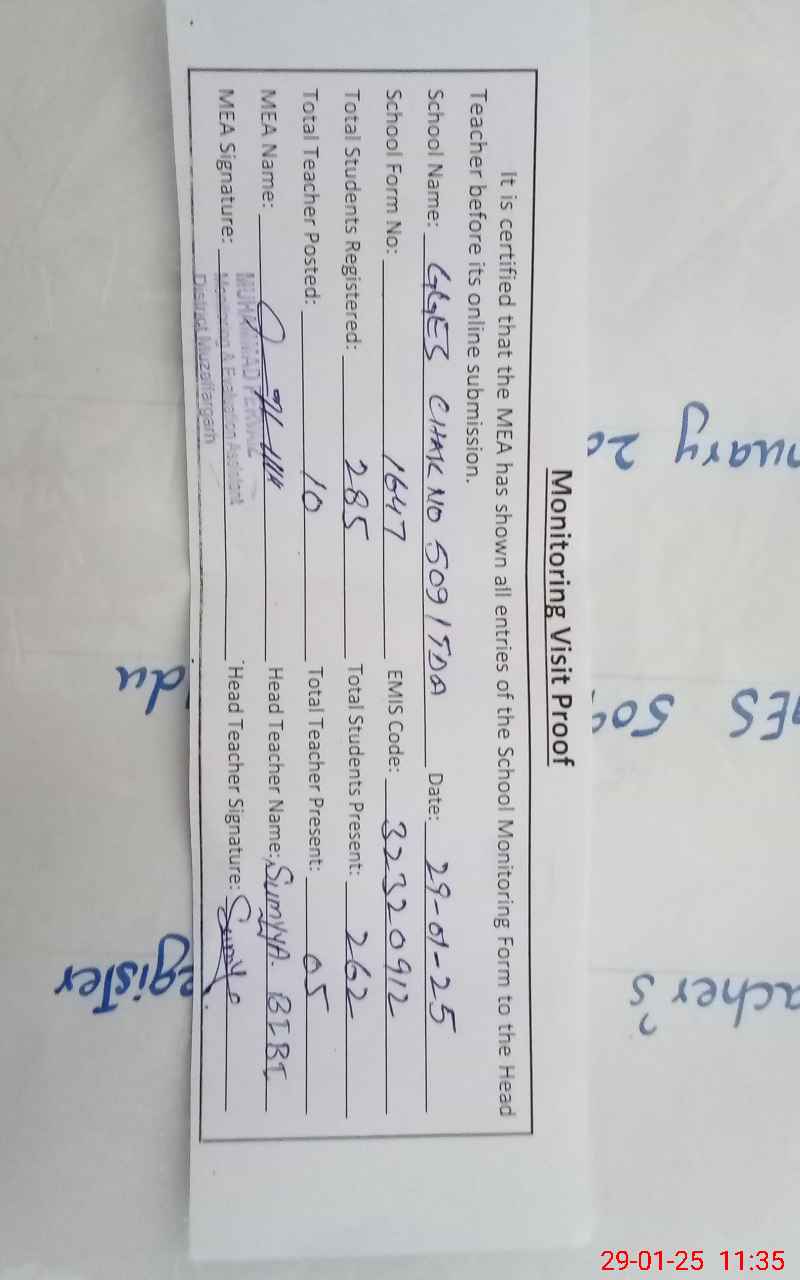 Monitoring Visit Proof
It is certified that the MEA has shown all entries of the School Monitoring Form to the Head
Teacher before its online submission.
School Name: GGES CHAK NO 509/TDA Date: 29-01-25
School Form No: 1647 EMIS Code: 32320912
Total Students Registered: 285 Total Students Present: 262
Total Teacher Posted: 10 Total Teacher Present: 05
MEA Name: Head Teacher Name: SUMYYA. BIBI
MEA Signature: Head Teacher Signature:
MUHAMMAD
Monitoring & Evaluation Assistant
District Muzaffargarh
nuary 20
ES 509
acher's
du
egister
29-01-25 11:35